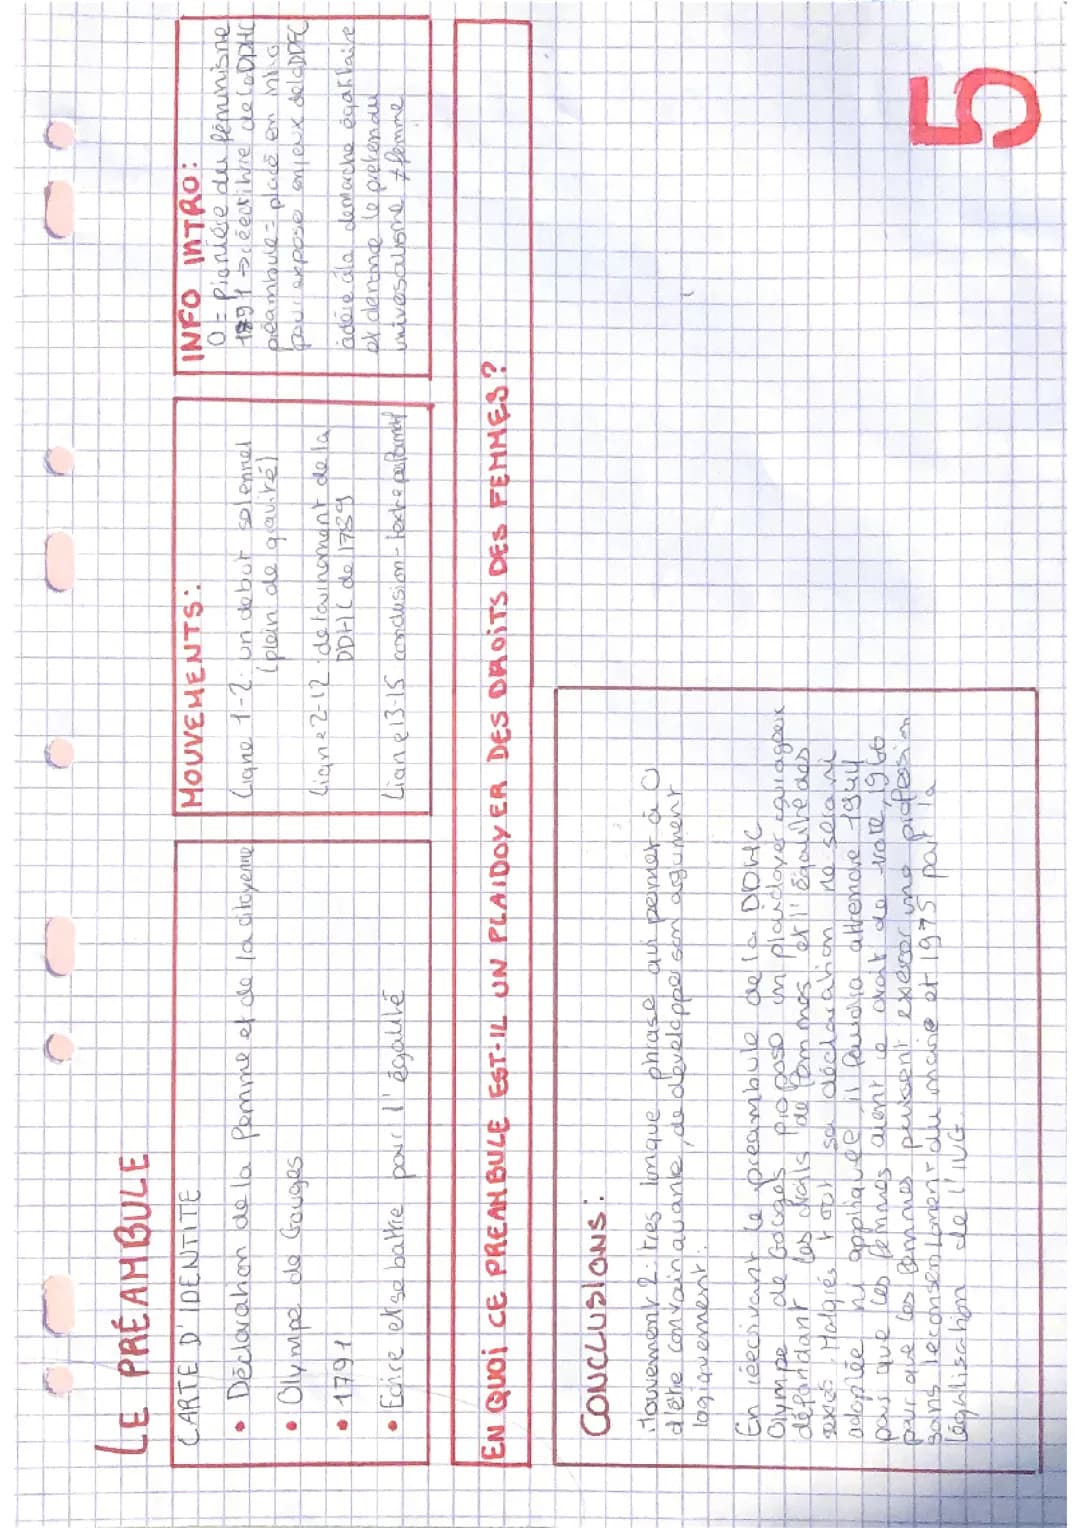 LE PRÉAMBULE
CARTE D'IDENTITE
• Déclaration de la femme et de la citoyenne
• Olympe de Gouges
• 1791
• Ecrire et se battre pour l'égalité
MOUVEMENTS:
Ligne 1-2: un debut solennel
(plein de gravité)
Ligne 2-12: detournement de la
DDHC de 1789
Ligne 13-15 conclusion-texte performatif
INFO INTRO:
O = Pionière du féminisme
1791 → réécriture de la DDHC
préambule = placé en
pour exposer enjeux de la DDFC
adère à la démarche égalitaire
et dénonce le prétendu
universalisme ≠ femme
EN QUOI CE PREAMBULE EST-IL UN PLAIDOYER DES DROITS DES FEMMES?
CONCLUSIONS:
Mouvement 2: très longue phrase qui permet à O
d'être convainquante, de développer son argument
logiquement.
En réécrivant le préambule de la DDHC
Olympe de Gouges propose un plaidoyer
défendant les droits de femmes et l'égalité des
sexes. Malgrés tout sa déclaration ne sera ni
adoptée ni appliquée il faudra attendre 1944
pour que les femmes aient le droit de vote, 1966
pour que les femmes puissent exercer une profession
sans le consentement du marie et 1975 pour la
légalisation de l'IVG.
5